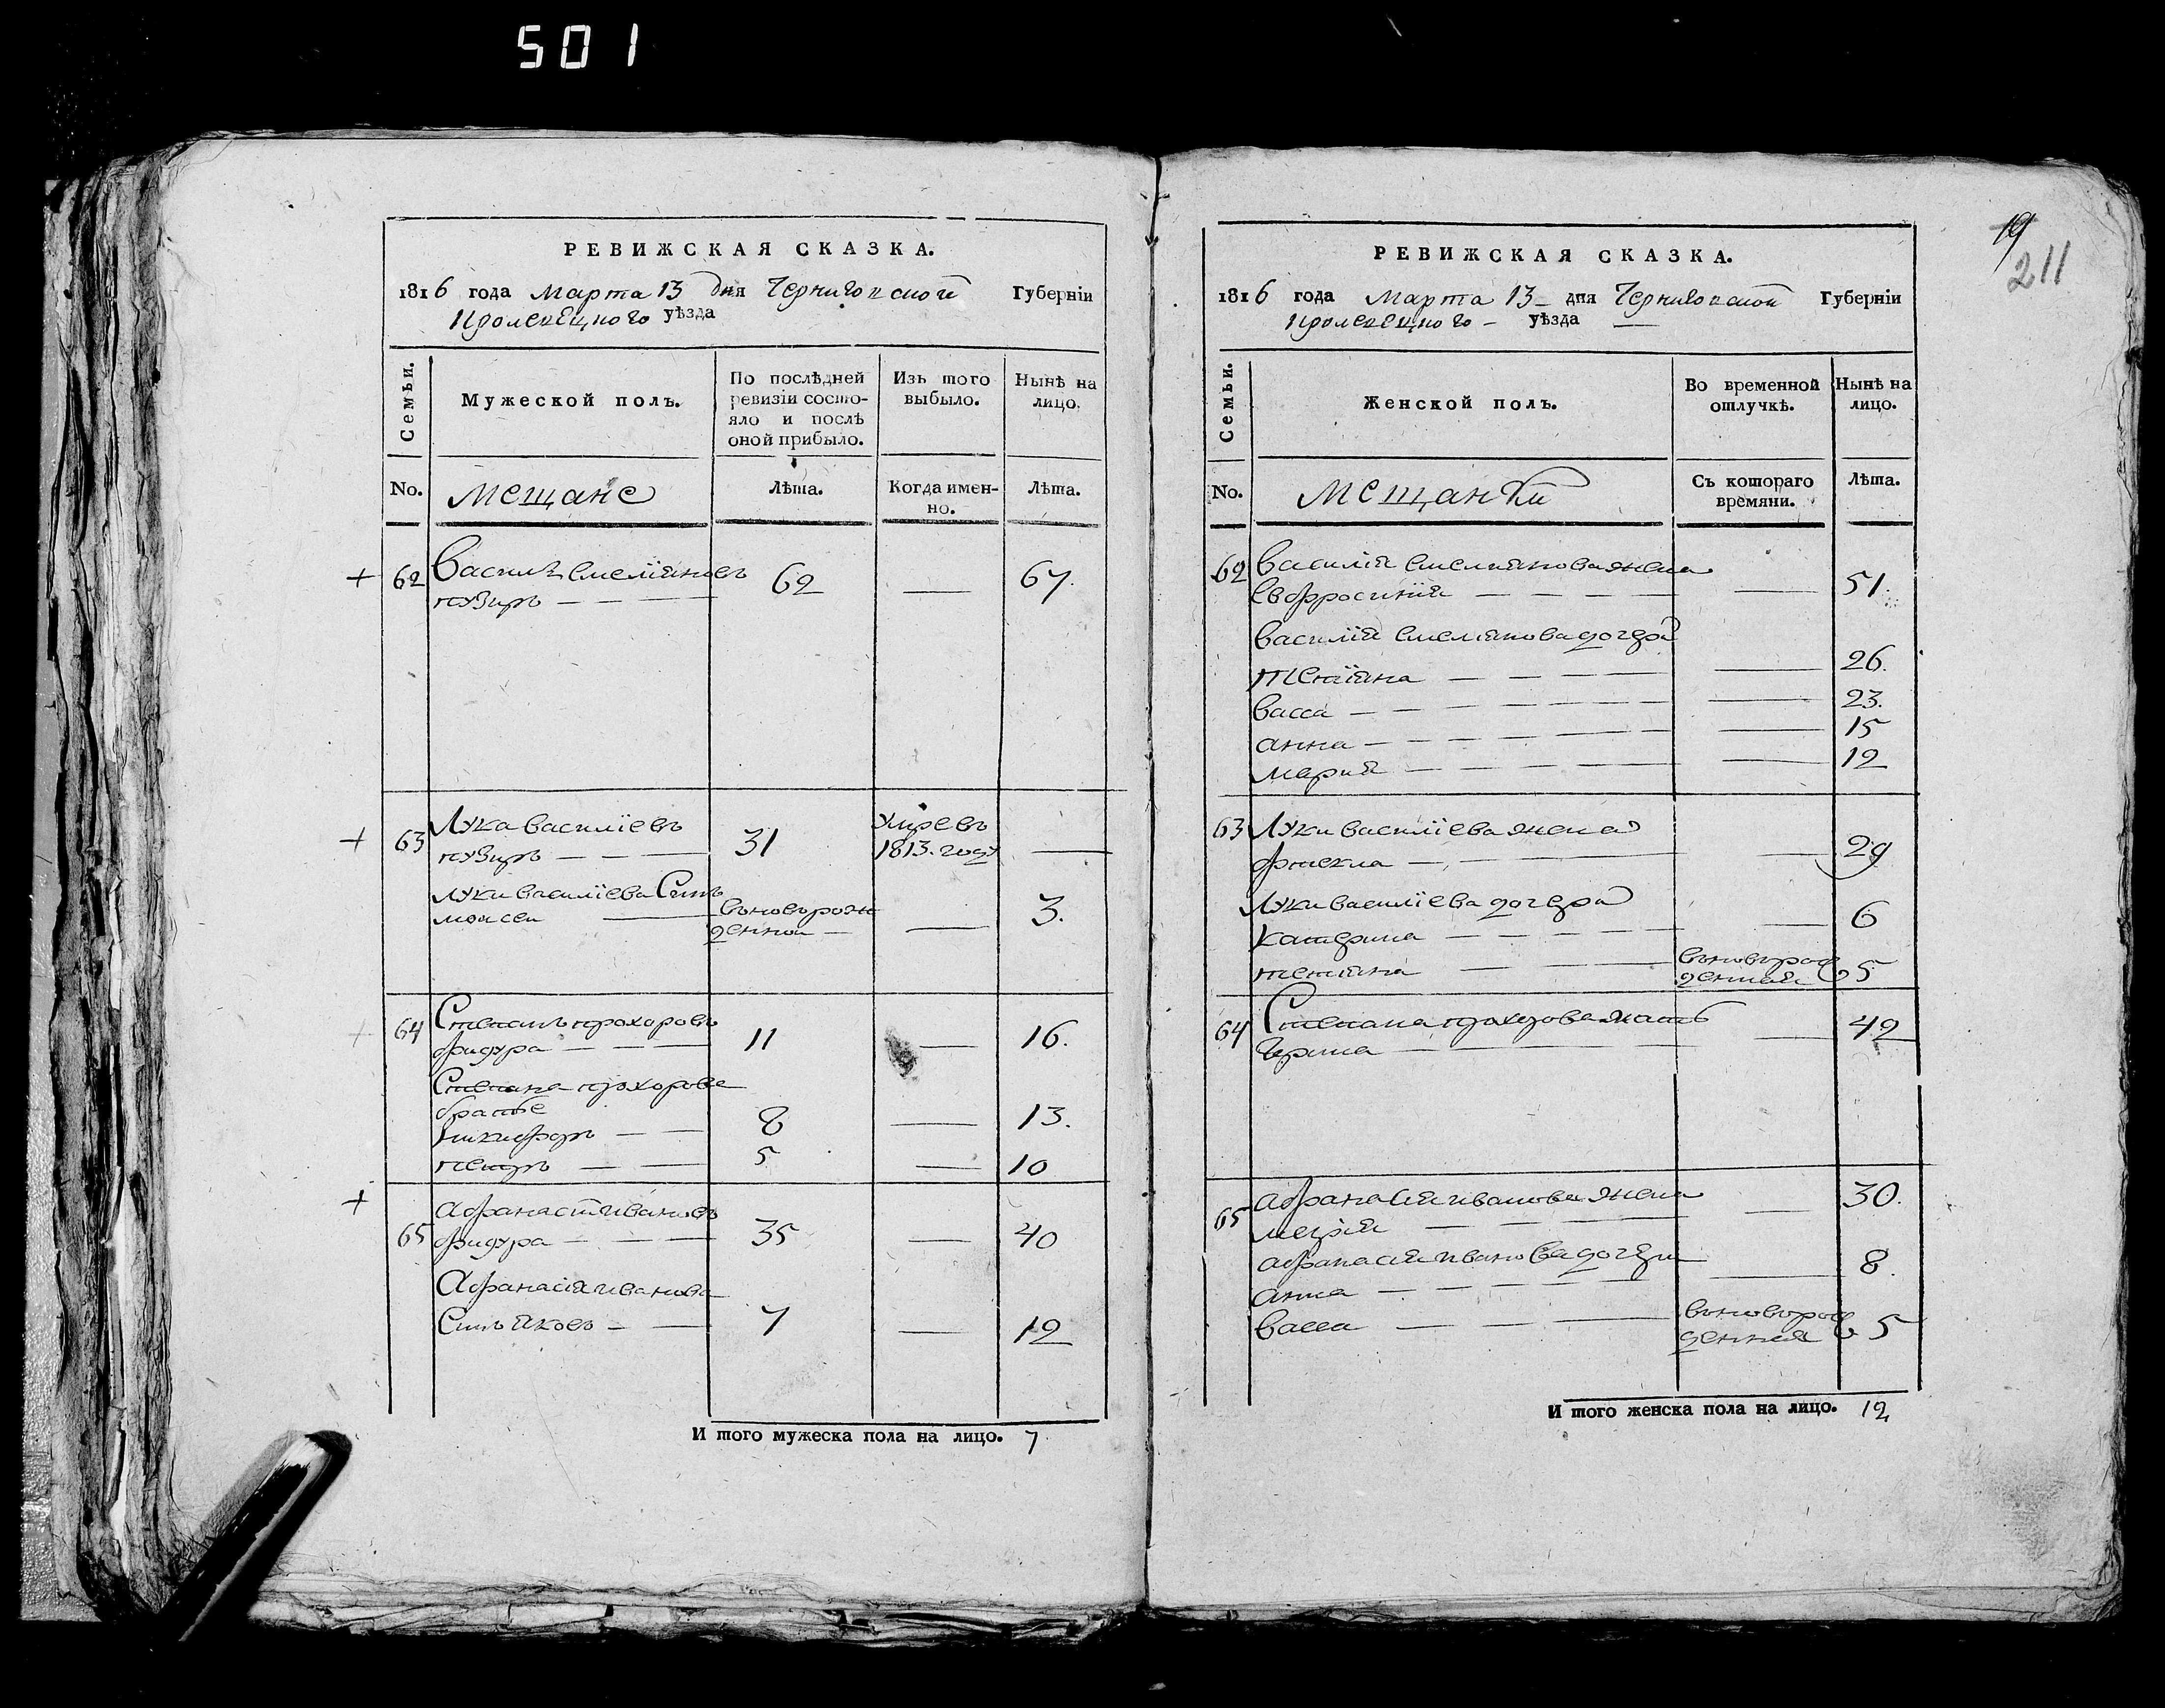 501
РЕВИЖСКАЯ СКАЗКА.
1816 года Марта 13 дня Черниговской Губернїи
Кролевецкого уѣзда
Семьи.
Мужеской полъ.
По послѣдней ревизїи состо-
яло и послѣ
оной прибыло.
Изъ того
выбыло.
Нынѣ на
лицо.
No. мещане Лѣта. Когда имен-
но. Лѣта.
62 Василь емелїяновъ 62 — 67.
пузиръ
63 Лука василїевъ 31 умре въ
пузиръ 1813. году —
Луки василїева Синъ вьновьрож
моисеи денной — 3.
64 Степанъ прохоровъ 11 — 16.
фидура
Степана прохорова
братье
никифоръ 8 — 13.
петръ 5 — 10
65 афанасїй ивановъ
фидура 35 — 40
Афанасїя иванова
Синъ яковъ 7 — 12
И того мужеска пола на лицо. 7
19
211
РЕВИЖСКАЯ СКАЗКА.
1816 года Марта 13 дня Черниговской Губернїи
Кролевецкого уѣзда
Семьи.
Женской полъ.
Во временной
отлучкѣ.
Нынѣ на
лицо.
No. мещанки Съ котораго
времяни. Лѣта.
62 василїя емелянова жена
евфросинїя — 51.
василїя емелянова дочера
тетїяна — 26.
васса — 23.
анна — 15
марїя — 12
63 Луки василїева жена
фтекла — 29
Луки василїева дочера
катерина — 6
тетїяна вьновьрож
денная 5
64 Степана прохорова мать — 42
65 афанасїя иванова жена — 30.
марїя
афанасїя иванова дочери
анна — 8.
васса вьновьрож
денная 5
И того женска пола на лицо. 12